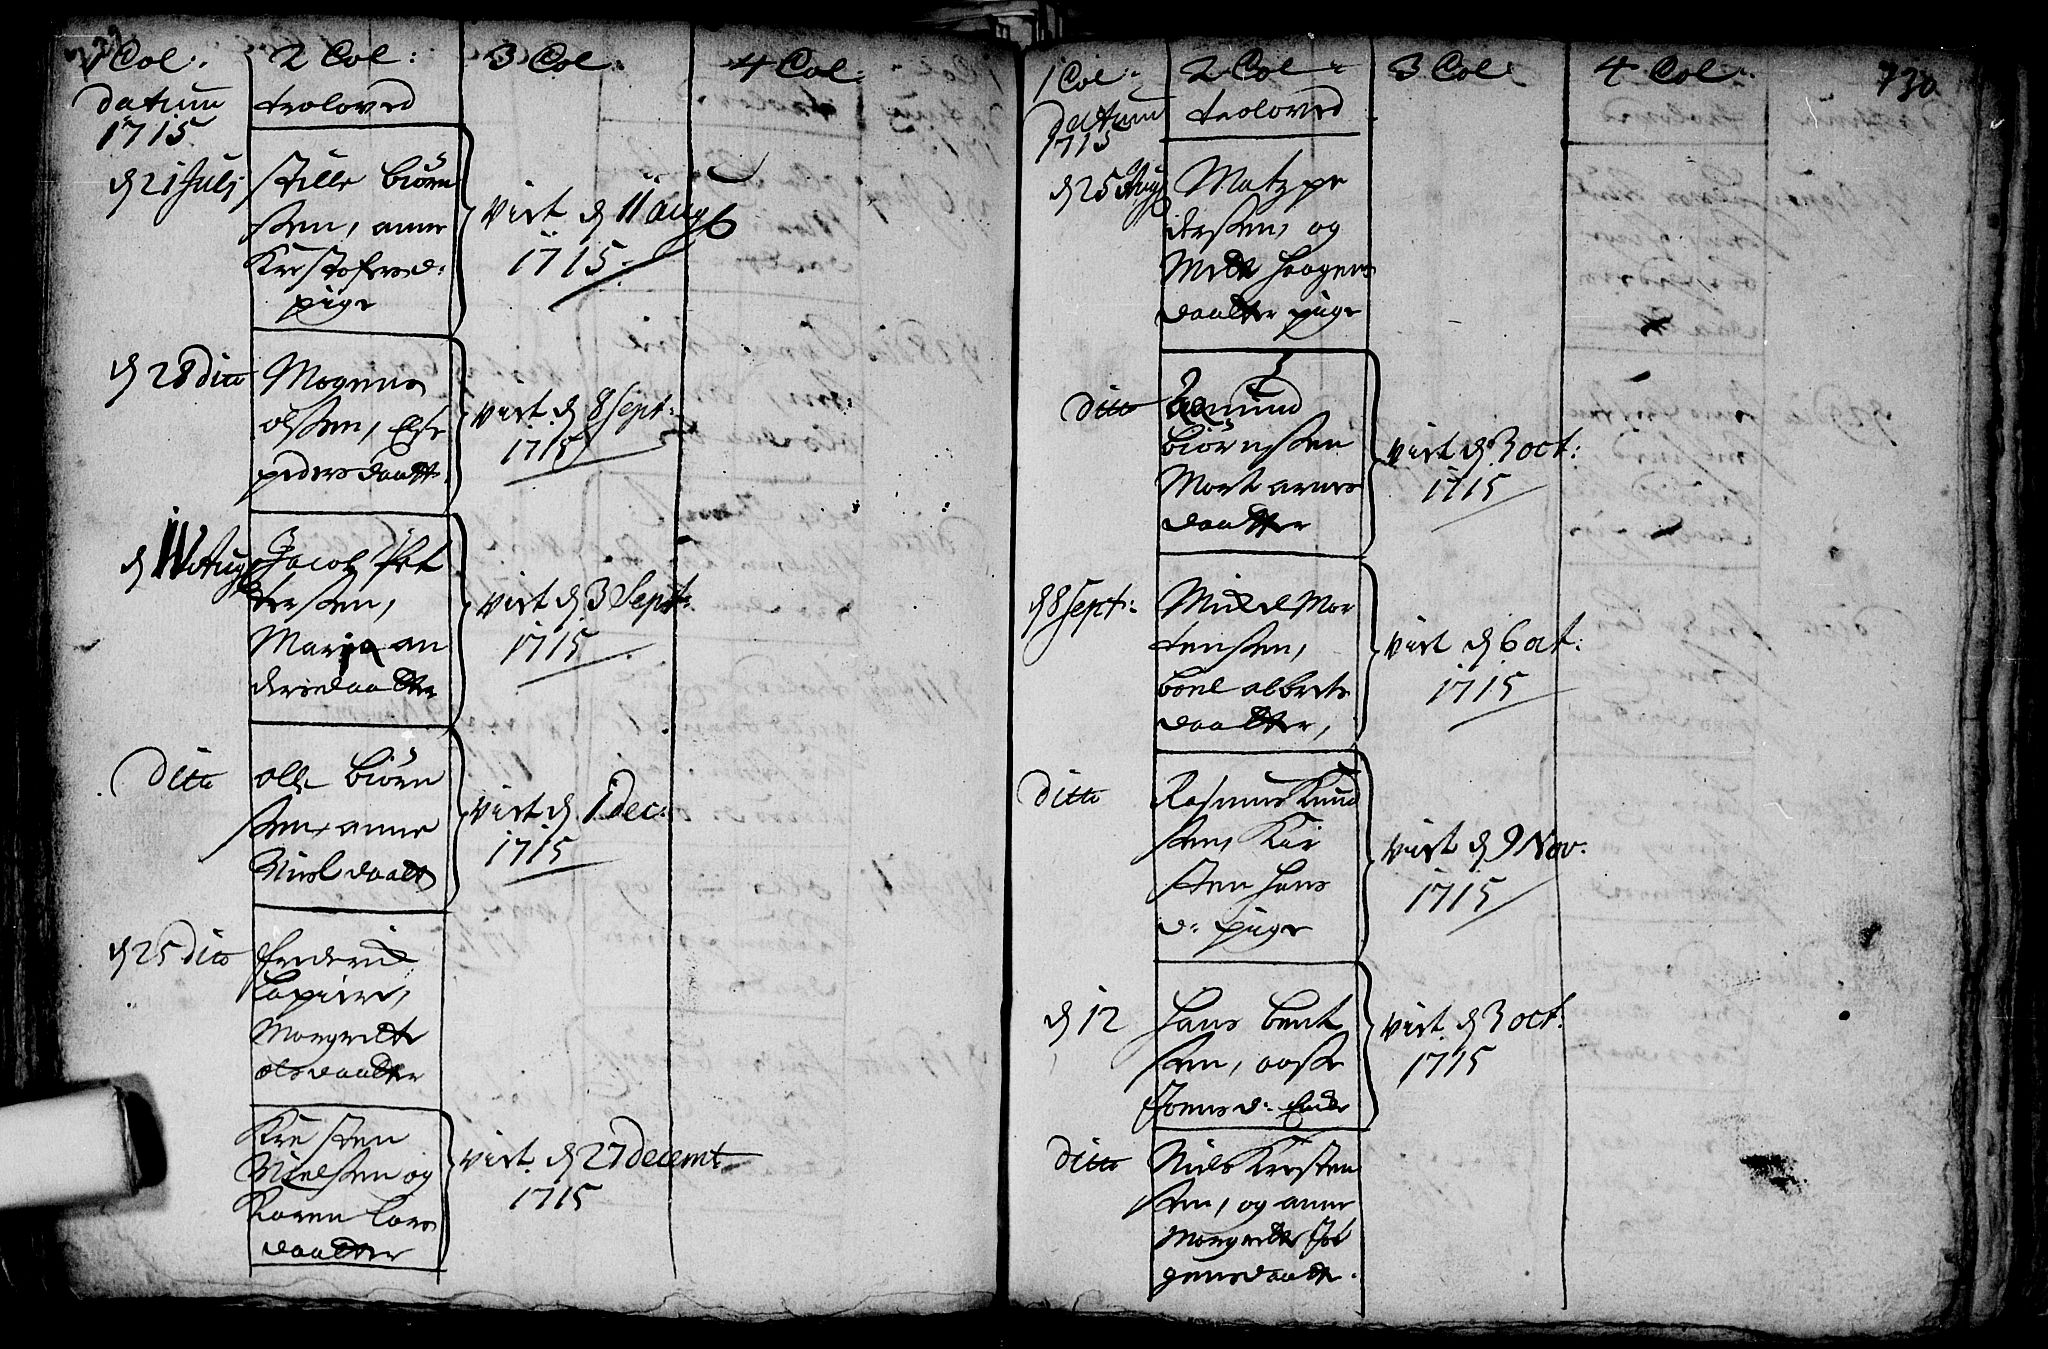 1 Col.
2 Col:
3 Col.
4 Col:
Datum
troloved
1715.
d 21 Julj
Stille Biørn
sen, anne
Kristofersd:
pige
Viet d 11 aug
1715.
d 28 Dito
Mogens
olssen, Else
pedersdaatt.
Viet d 8 Sept:
1715
d 11 Aug
Jacob Pet
tersen,
Maria an
dersdaatter
Viet d 3 Sept:
1715
Ditto
olle Biørn
sen anne
Nielsdaatt
Viet d 1 Dec:
1715
d 25 Dito
Frederick
Margrette
olsdaatter
Kresten
Nielsen og
Karen Lars
daatter
Viet d 27 Decemt
1715
1 Col.
2 Col.
3 Col:
4 Col.
730
Datum
troloved
1715
d 25 Aug
Matz pe
dersen, og
Haagens
daatter pige
Ditto
Biørnsen
Mari arnes
daatter
Viet d 3 oct:
1715
d 8 Sept:
Mickel Mor
tensen,
Boel alberts
daatter,
Viet d 6 oct:
1715
Ditto
Rasmus Knud
sen, Kir
sten Hans
d: pige
Viet d 9 Nov.
1715
d 12
Hans Bent
sen, aase
Joensd: Encke
Viet d 3 oct:
1715
Ditto
Niels Kresten
sen, og anne
Margrette Jør
gensdaatt.